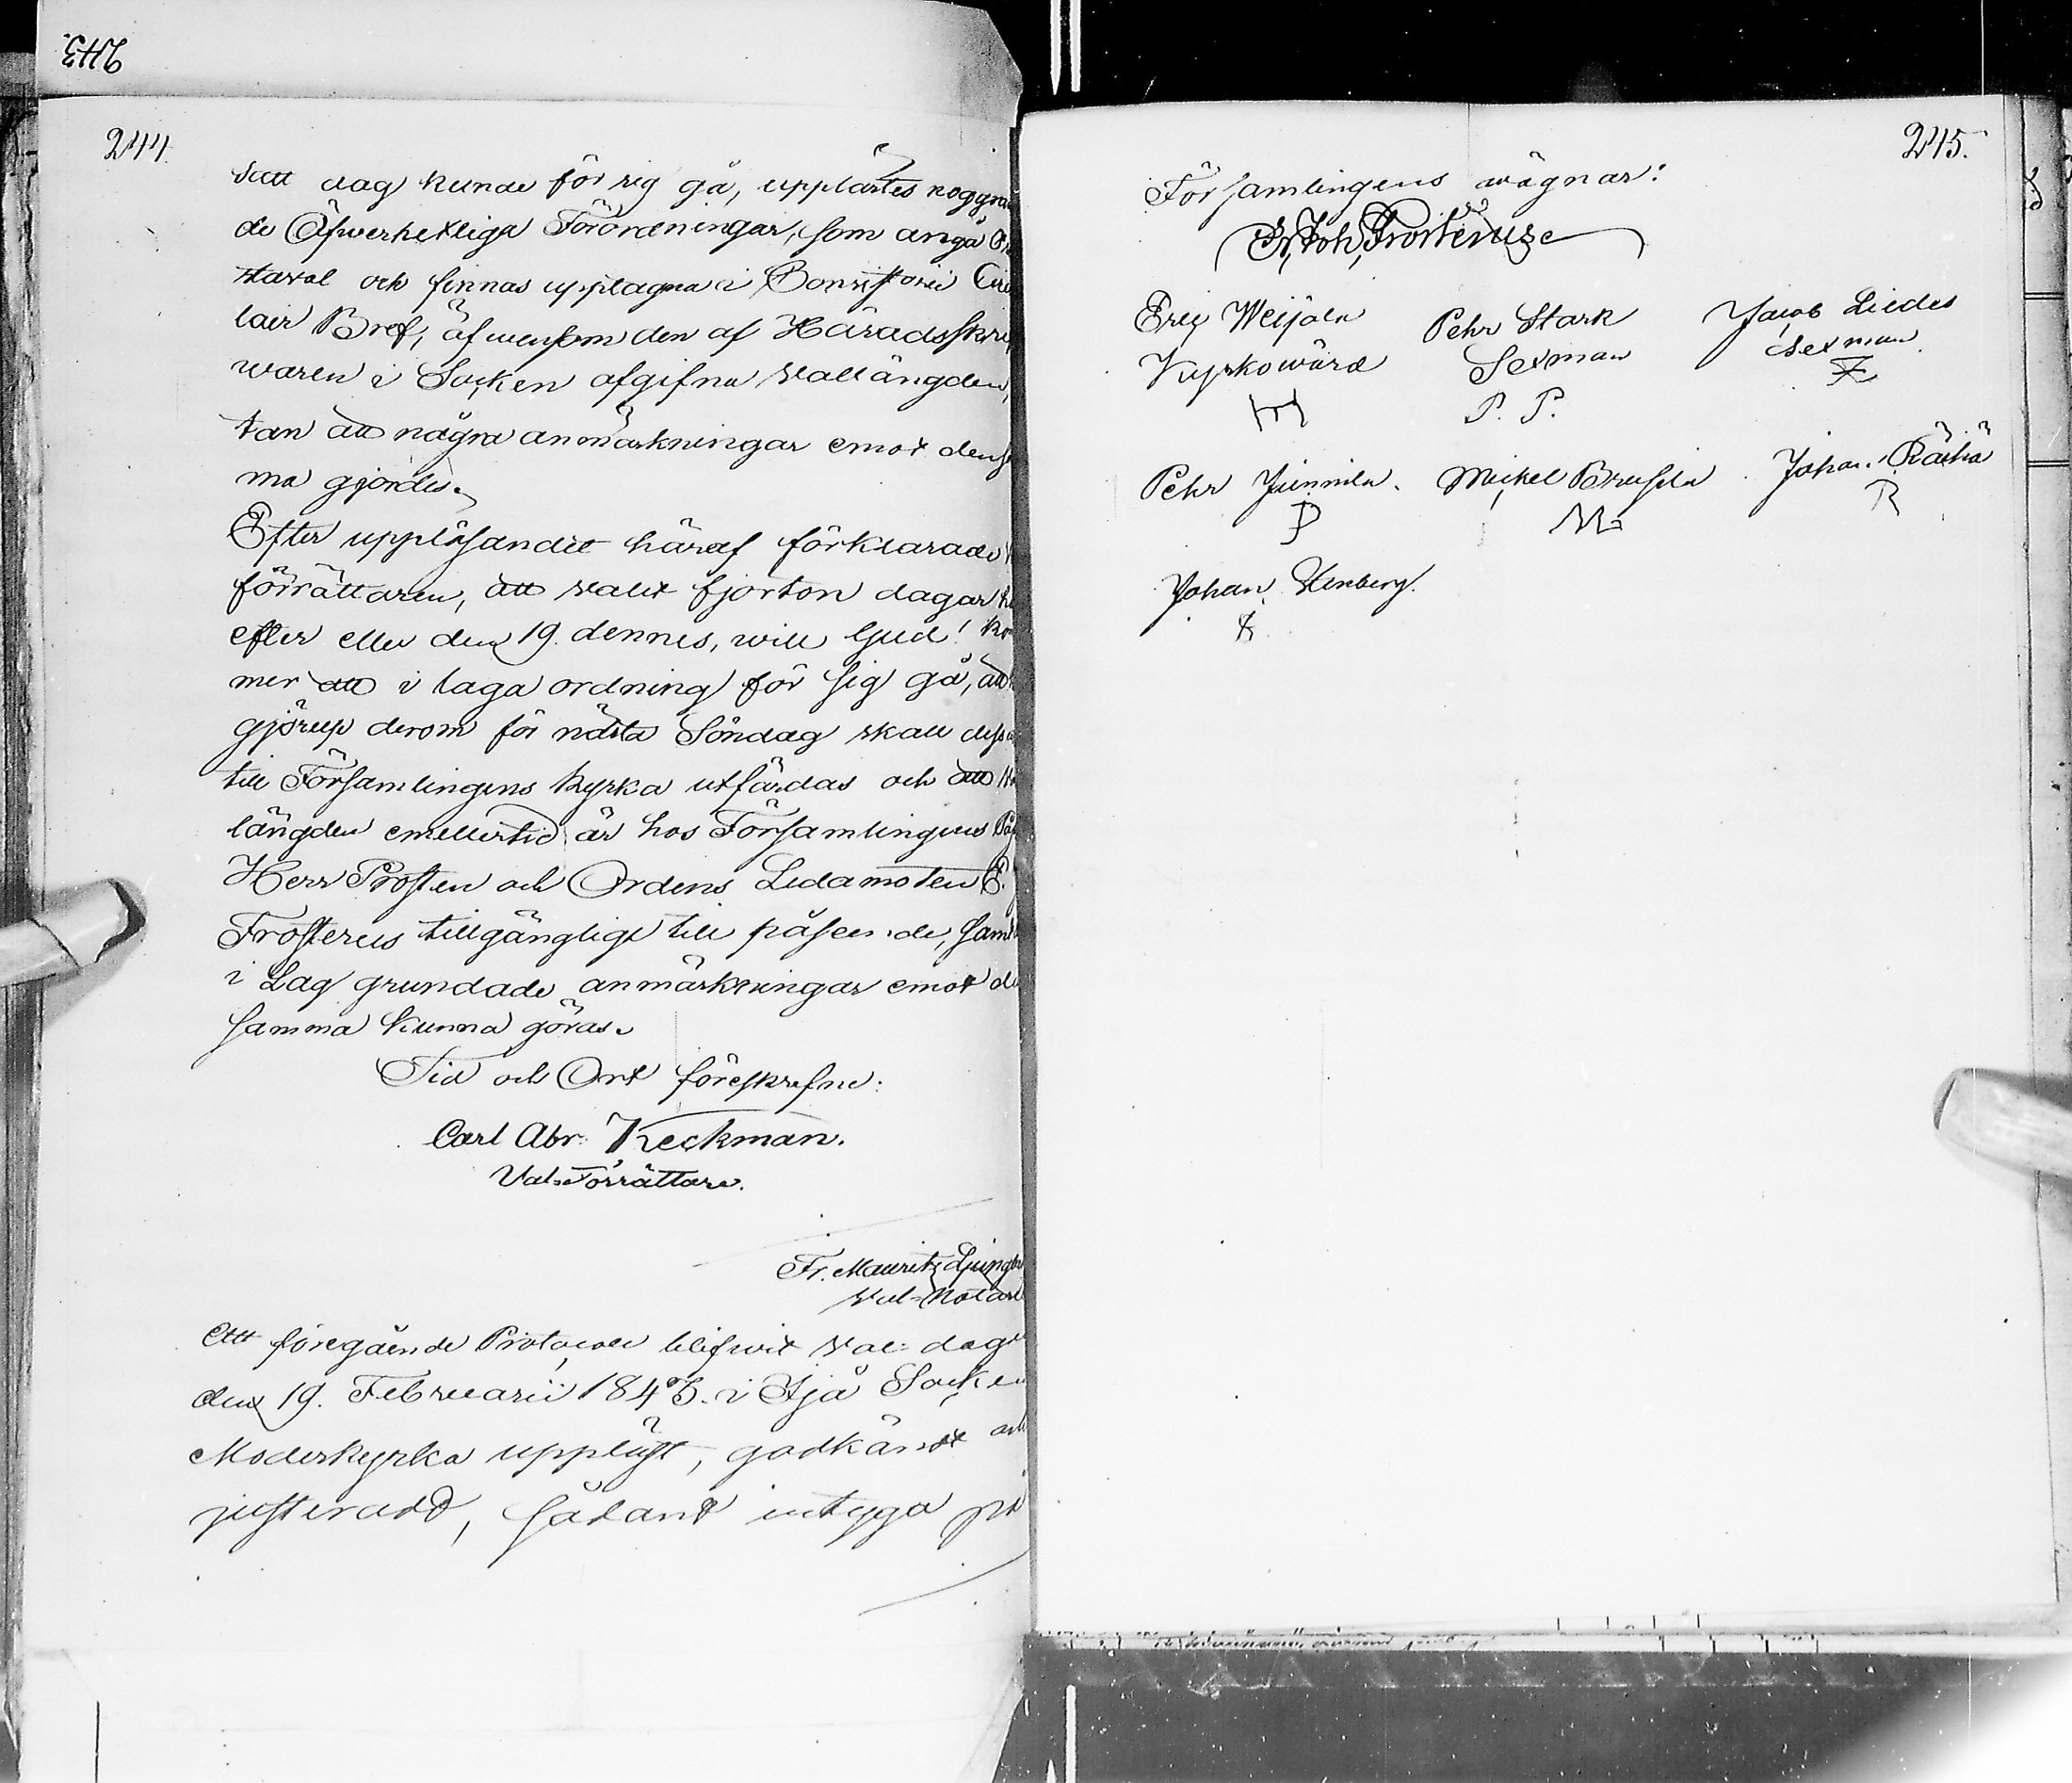 243.
244.
satt dag kunde för sig gå, upplästes noggra
de Öfwerhetliga Förordningar, som angå Pre
staval och finnas upptagna i Consistorii Circu
lair Bref, äfwensom den af Häradsskri
waren i Socken afgifna vallängden,
tan att några anmärkningar emot dens
ma gjordes.
Efter uppläsandet häraf förklarade
förrättaren, att valet fjorton dagar he
efter eller den 19. dennes, will Gud! kom
mer att i laga ordning för sig gå, att
gjörup derom för nästa Söndag skall
till Församlingens Kyrka utfärdas och att
längden emellertid är hos Församlingens
Herr Prosten och Ordens Ledamoten
Frosterus tillgänglige till påseende, samt
i Lag grundade anmärkningar emot de
samma kunna göras.
Tid och Ort föreskrefne:
Carl Abr: Keckman.
Val-Förrättare.
Fr. Mauritz Ljung
Val-Notari
Att föregående Protocoll blifwit Val-dage
den 19. Februarii 1843. i Ijå Socken
Moderkyrka uppläst, godkändt och
justeradt, sådant intyga på
245.
Församlingens wägnar:
Joh, Frosterus
Eric Weijola Pehr Stark Jacob Liedes
Kyrkowärd Sexman Sexman
P. P.
Pehr Junnila. Mickel Brusila Johan Räihä
P M R
Johan Stenberg.